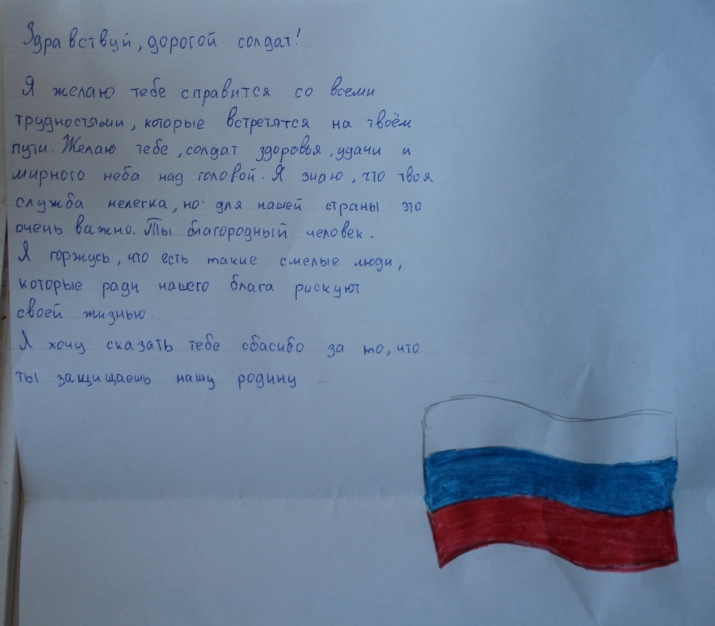 Здравствуй, дорогой солдат!
Я желаю тебе справится со всеми
трудностями, которые встретятся на твоём
пути. Желаю тебе, солдат здоровья, удачи и
мирного неба над головой. Я знаю, что твоя
служба нелегка, но для нашей страны это
очень важно. Ты благородный человек.
Я горжусь, что есть такие смелые люди,
которые ради нашего блага рискуют
своей жизнью.
Я хочу сказать тебе сбасибо за то, что
ты защищаешь нашу родину